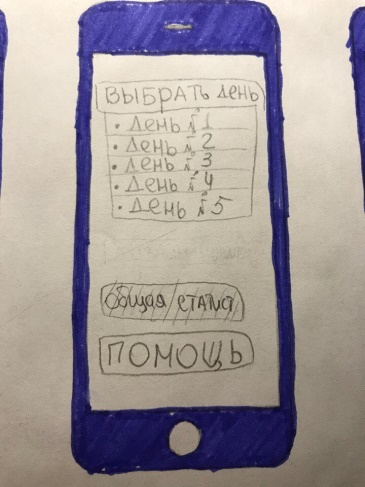 ВЫБРАТЬ ДЕНЬ
• ДЕНЬ №1
• ДЕНЬ №2
• ДЕНЬ №3
• ДЕНЬ №4
• ДЕНЬ №5
ОБЩАЯ СТАТИСТ
ПОМОЩЬ